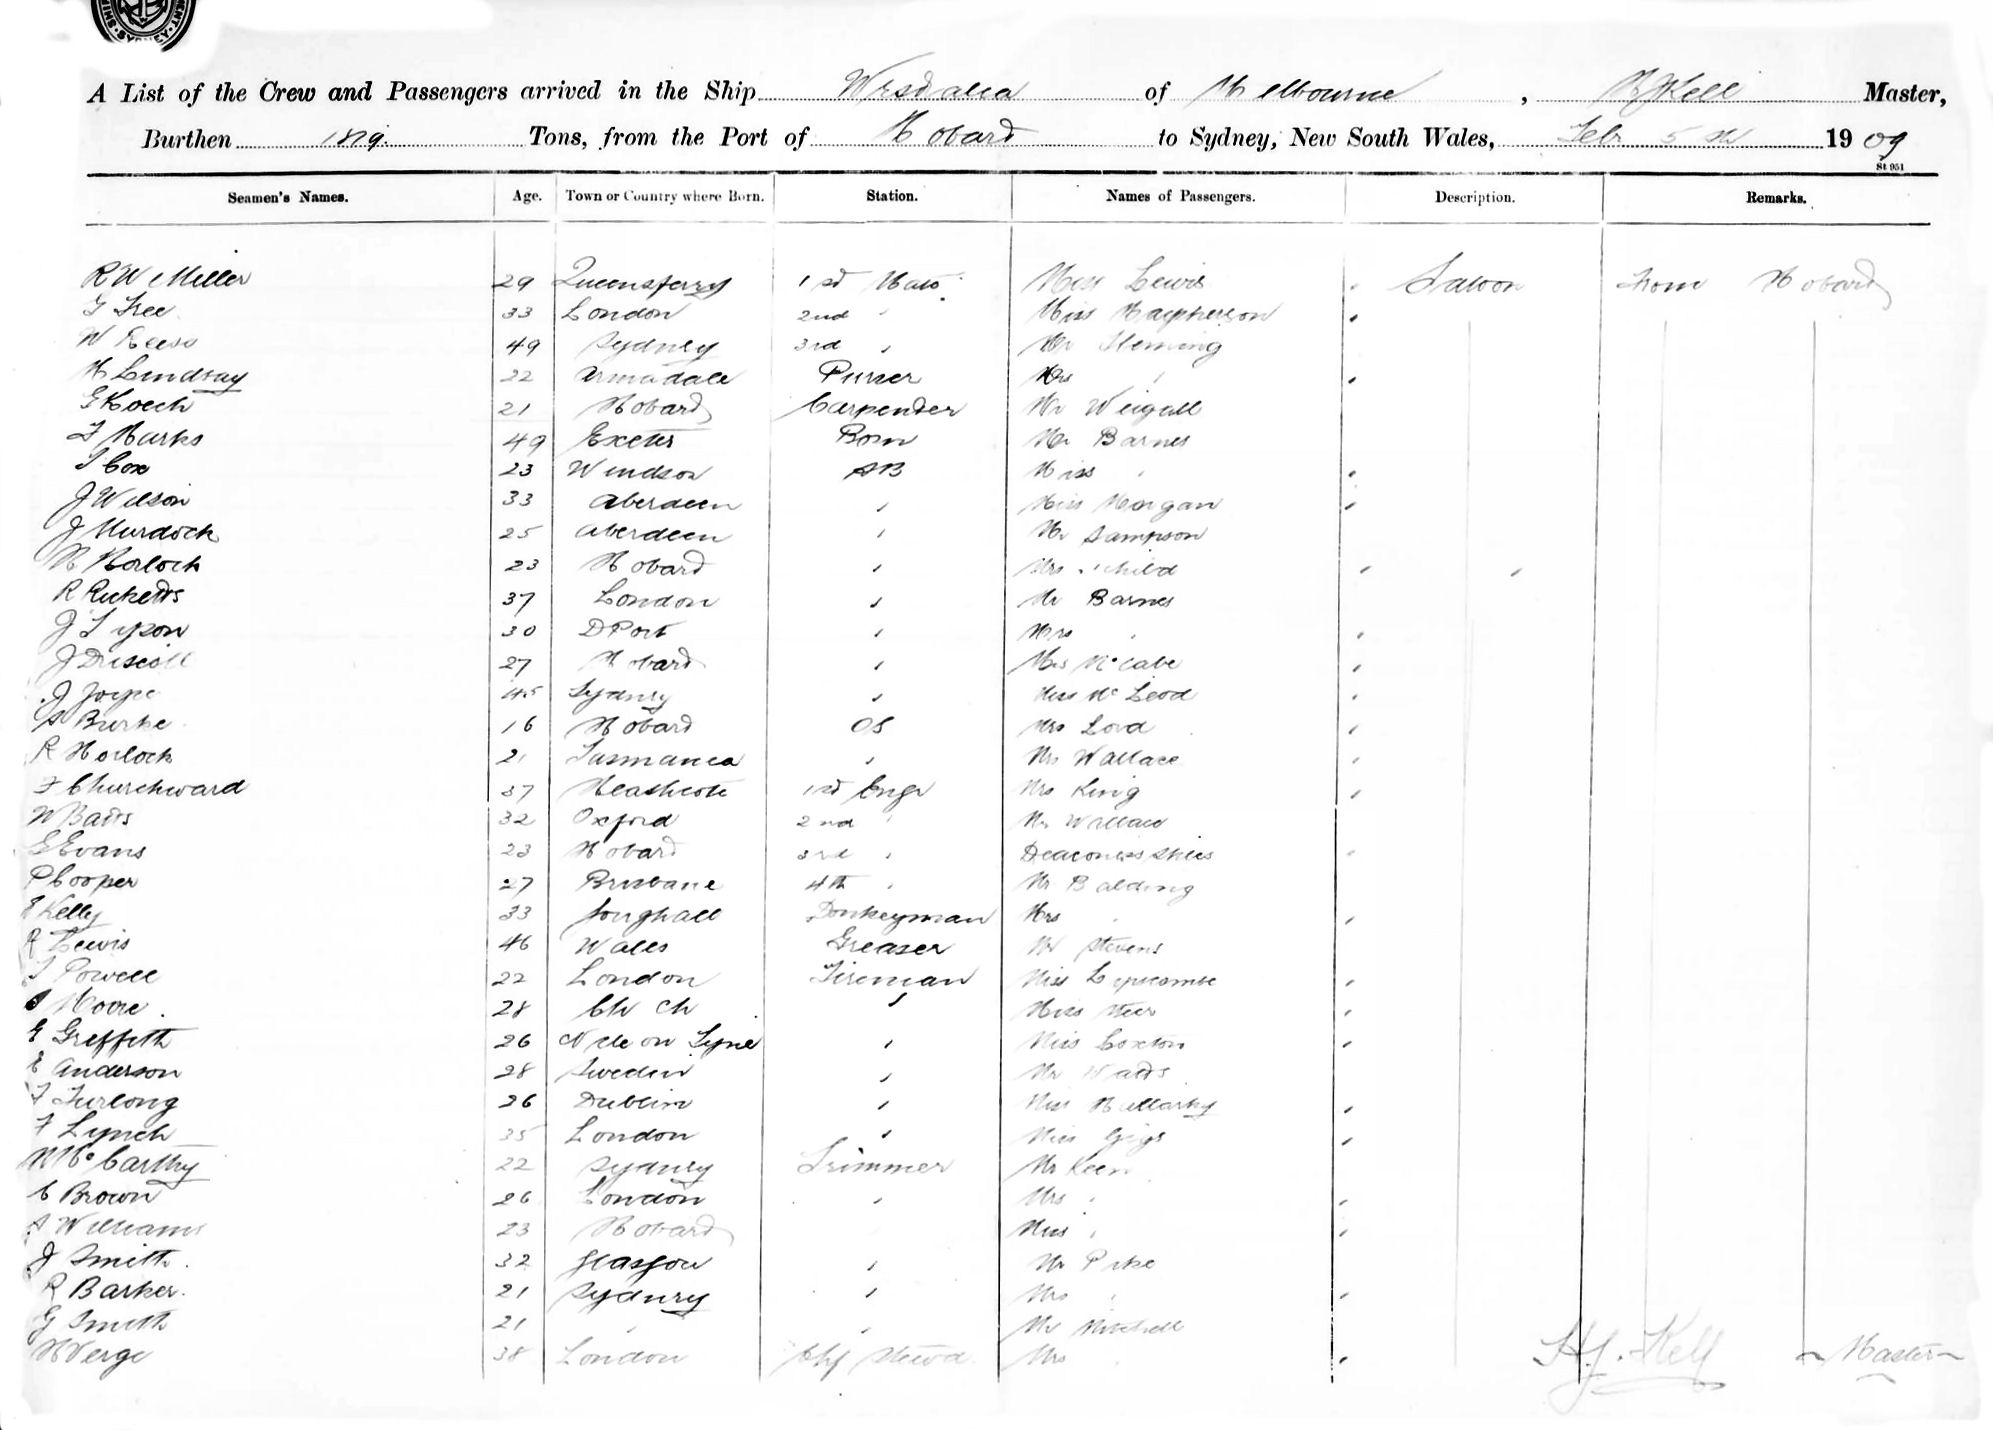 A List of the Crew and Passengers arrived in the Ship Westralia of Melbourne, H J Kell Master,
Burthen 1819. Tons, from the Port of Hobart to Sydney, New South Wales, Feby 5th 1909
St 951
Seamen's Names. Age. Town or Country where Born. Station. Names of Passengers. Description. Remarks.
R W Miller 29 Queensferry 1st Mate Miss Lewis , Saloon From Hobart
Free 33 London 2nd " Miss Macpherson ,
W Reess 49 Sydney 3rd " Mr Fleming
H Lindsay 22 Armadale Purser Mrs " ,
Koech 21 Hobart Carpenter Mr Weigall
Marks 49 Exeter Bosn Mr Barnes
Cox 23 Windsor AB Miss " ,
J Wilson 33 Aberdeen " Miss Morgan ,
J Murdock 25 Aberdeen " Mr Sampson
H Horlock 23 Hobart " Mrs " child , "
R Ricketts 37 London " Mr Barnes
J Tyson 30 DPort " Mrs " ,
J Driscoll 27 Hobart " McCabe ,
J Joyce 45 Sydney " Miss McLeod ,
Burke 16 Hobart OS Mrs Lord ,
R Horlock 21 Tasmania " Mrs Wallace ,
F Churchward 37 Heathcote 1st Engr Mrs King ,
W Batts 32 Oxford 2nd " Mr Wallace
E Evans 23 Hobart 3rd " Deaconess ,
P Cooper 27 Brisbane 4th " Mr Balding
Kelly 33 Youghall Donkeyman Mrs " ,
R Lewis 46 Wales Greaser Mr Stevens
Powell 22 London Fireman Miss Lipscombe ,
Moore 28 Ch Ch " Miss ,
E Greffith 26 on Tyne " Miss Coxton ,
E Anderson 28 Sweden " Mr Watts
F Furlong 26 Dublin " Miss ,
F Lynch 35 London " Miss ,
McCarthy 22 Sydney Trimmer Mr Keen
C Brown 26 London " Mrs " ,
Williams 23 Hobart Miss " ,
J Smith 32 Glasgow " Mr Pike
R Barker 21 Sydney " Mrs " ,
G Smith 21 " " Mr Mitchell
H Verge 38 London Chf Stewd Mrs " ,
H.J. Kell Master